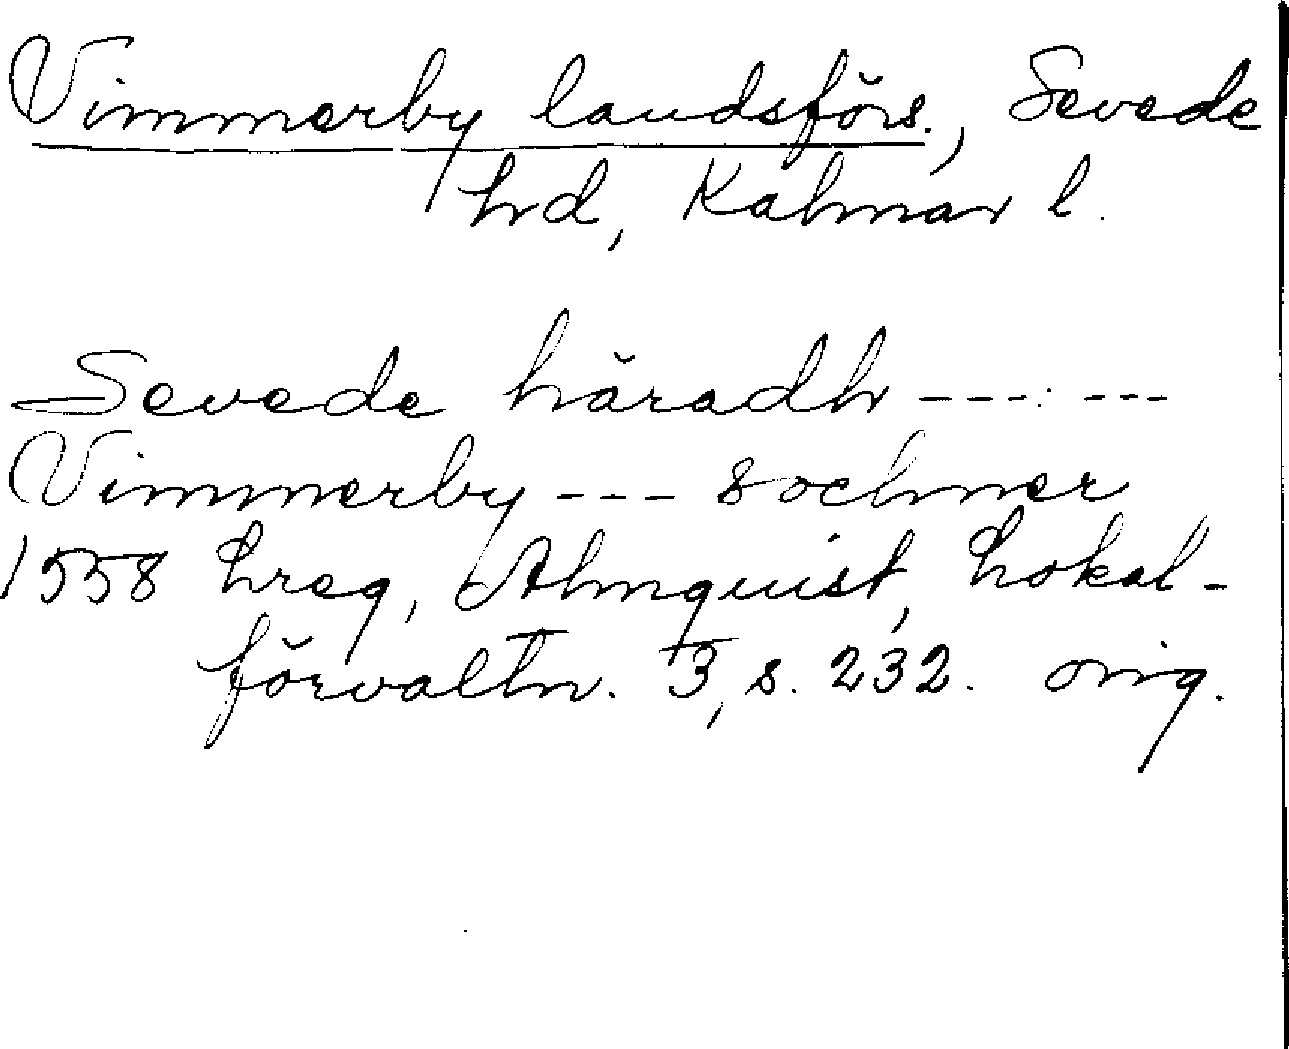 Vimmerby landsförs., Sevede
hd, Kalmar l.
Sevede häradh --- ---
Vimmerby --- sochner
1558 hreg, Almquist, Lokal-
förvaltn. 3, s. 232. orig.